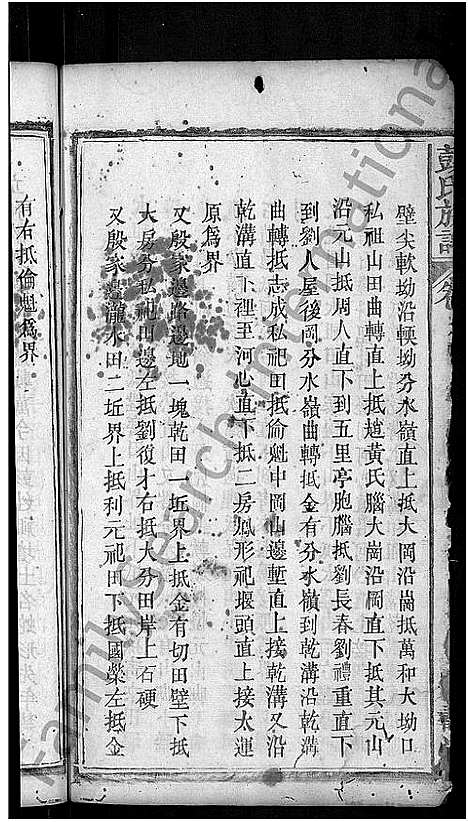 彭氏族譜
壁尖軟坳沿軟坳分水嶺直上抵大岡沿崗抵萬和大坳口
私祖山田曲轉直上抵趙黃氏腦大崗沿岡直下抵其元山
沿元山抵周人直下到五里亭胞腦抵劉長春劉禮重直下
到劉人屋後岡分水嶺曲轉抵金有分水嶺到乾溝沿乾溝
曲轉抵志成私祀田抵倫魁中岡山邊塹直上接乾溝又沿
乾溝直下裡至河心直下抵二房鳳形祀堰頭直上接太運
原為界
又殷家邊路邊地一塊乾田一坵界上抵金有切田壁下抵
大房分私祀田邊左抵劉復才右抵大分田岸上石硬
又殷家邊瀧水田二坵界上抵利元祀田下抵國榮左抵金
有右抵倫魁為界
familysearch international